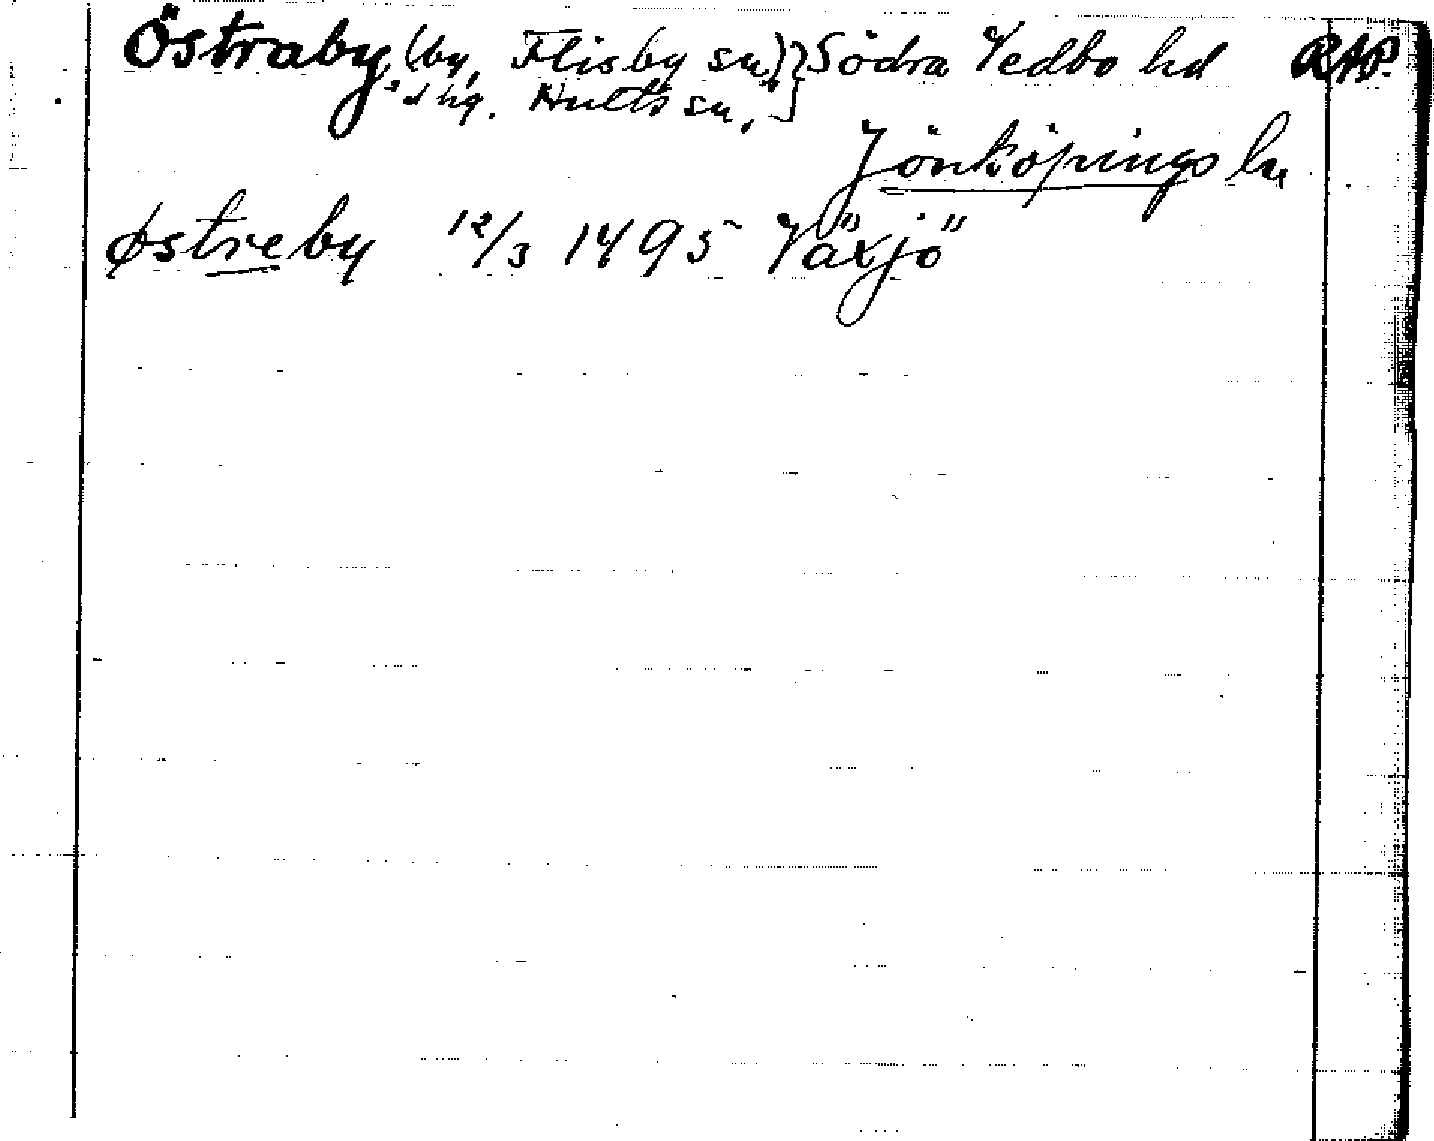 Östraby (by, Flisby sn) Södra Vedbo hd RAP.
hg. Hults sn,
Jönköpings ln
Østreby 12/3 1495 Växjö